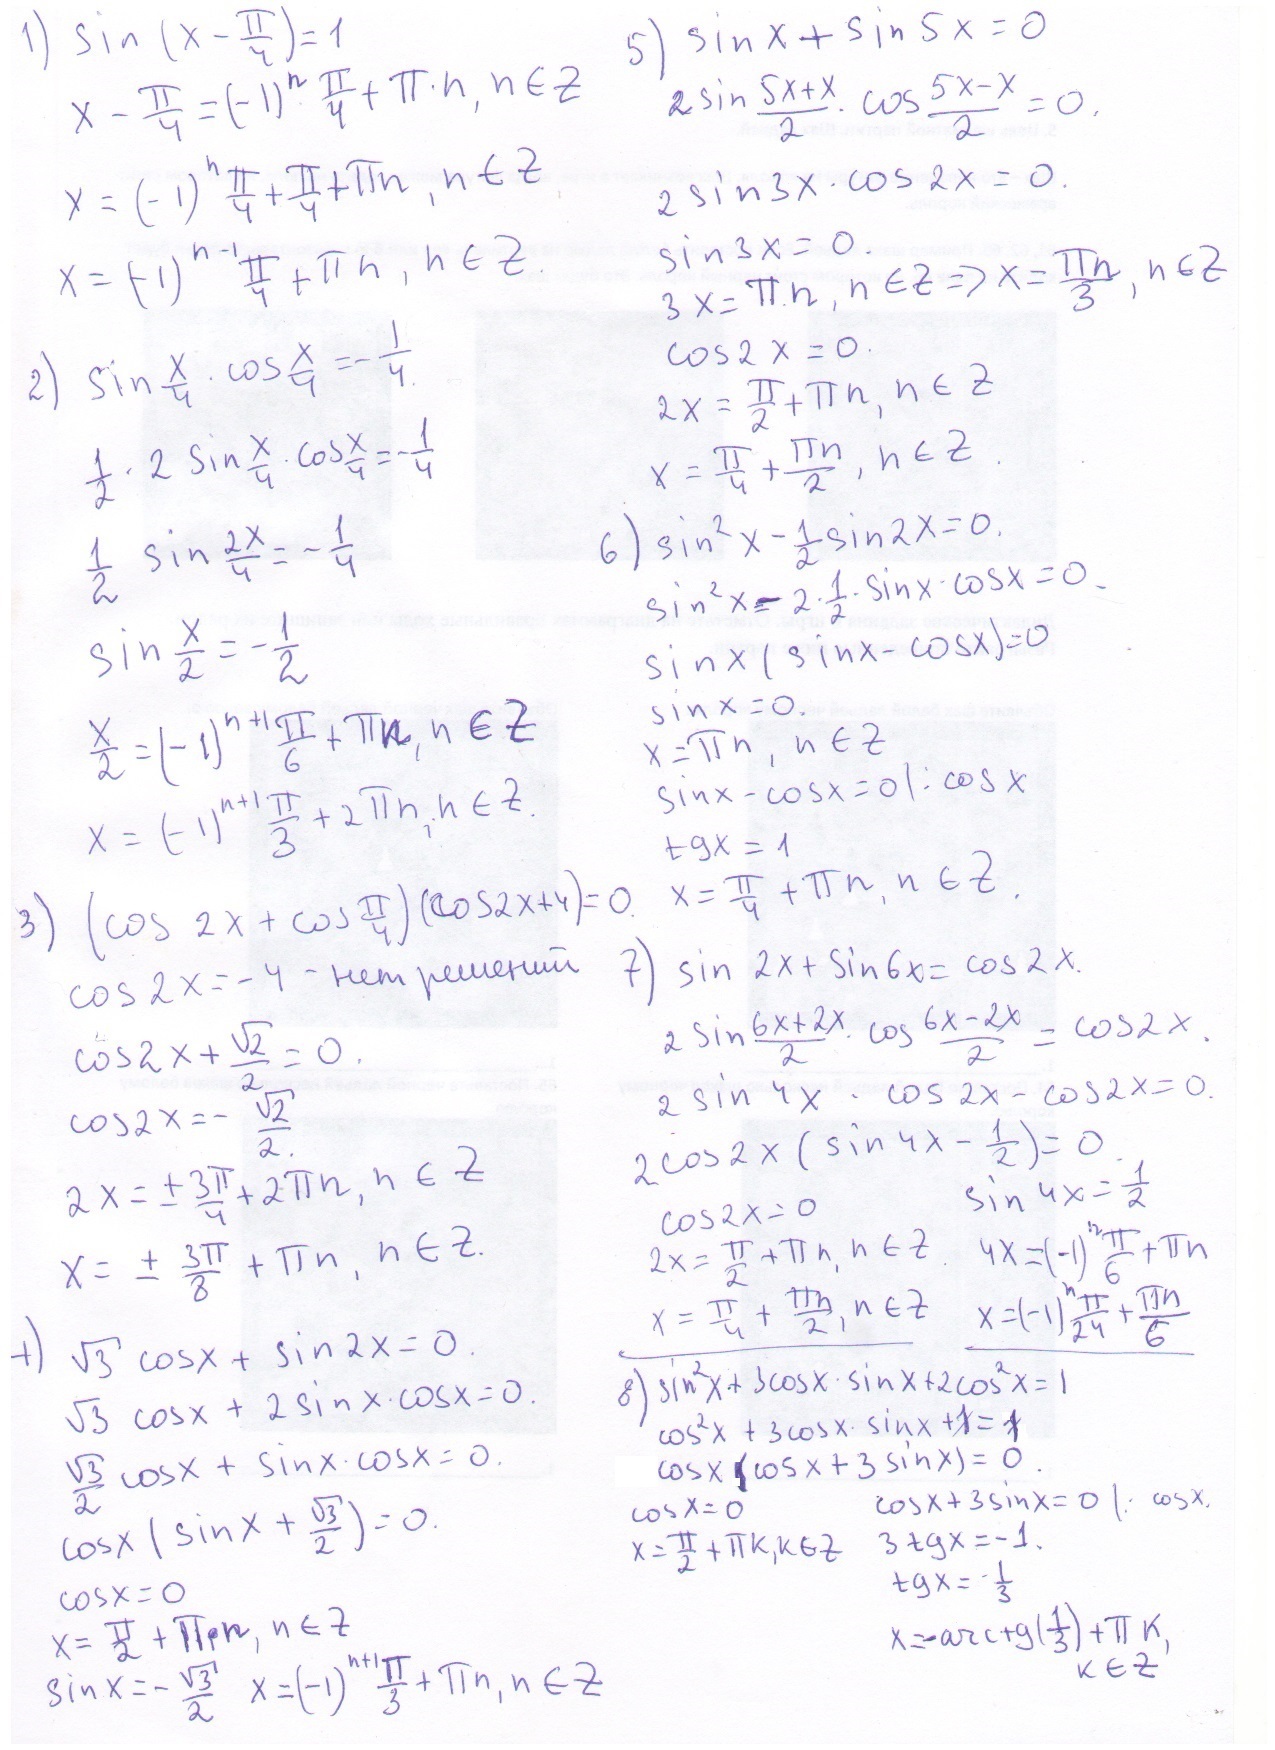 1) sin (x - π/4) = 1
x - π/4 = (-1)^n π/4 + π·n, n ∈ Z
x = (-1)^n π/4 + π/4 + πn, n ∈ Z
x = (-1)^(n-1) π/4 + πn, n ∈ Z
2) sin x/4 · cos x/4 = -1/4.
1/2 · 2 sin x/4 · cos x/4 = -1/4
1/2 sin 2x/4 = -1/4
sin x/2 = -1/2
x/2 = (-1)^(n+1) π/6 + πn, n ∈ Z
x = (-1)^(n+1) π/3 + 2πn, n ∈ Z.
3) (cos 2x + cos π/4)(cos2x+4) = 0.
cos 2x = -4 - нет решений
cos2x + √2/2 = 0.
cos2x = - √2/2.
2x = ± 3π/4 + 2πn, n ∈ Z
x = ± 3π/8 + πn, n ∈ Z.
4) √3 cosx + sin2x = 0.
√3 cosx + 2sinx·cosx = 0.
√3/2 cosx + sinx·cosx = 0.
cosx (sinx + √3/2) = 0.
cosx = 0
x = π/2 + πn, n ∈ Z
sinx = - √3/2 x = (-1)^(n+1) π/3 + πn, n ∈ Z
5) sin x + sin 5x = 0
2sin (5x+x)/2 · cos (5x-x)/2 = 0.
2sin3x · cos 2x = 0.
sin3x = 0
3x = πn, n ∈ Z => x = πn/3, n ∈ Z
cos2x = 0.
2x = π/2 + πn, n ∈ Z
x = π/4 + πn/2, n ∈ Z.
6) sin²x - 1/2 sin2x = 0.
sin²x - 2·1/2·sinx·cosx = 0.
sinx (sinx - cosx) = 0
sinx = 0.
x = πn, n ∈ Z
sinx - cosx = 0 |: cosx
tgx = 1
x = π/4 + πn, n ∈ Z.
7) sin 2x + sin6x = cos2x.
2 sin (6x+2x)/2 · cos (6x-2x)/2 = cos2x.
2 sin 4x · cos 2x - cos2x = 0.
2cos2x (sin4x - 1/2) = 0.
cos2x = 0 sin 4x = 1/2
2x = π/2 + πn, n ∈ Z 4x = (-1)^n π/6 + πn
x = π/4 + πn/2, n ∈ Z x = (-1)^n π/24 + πn/6
8) sin²x + 3cosx·sinx + 2cos²x = 1
cos²x + 3cosx·sinx + 1 = 1
cosx (cosx + 3sinx) = 0.
cosx = 0 cosx + 3sinx = 0 |: cosx.
x = π/2 + πk, k ∈ Z 3tgx = -1.
tgx = -1/3
x = -arctg(1/3) + πk,
k ∈ Z